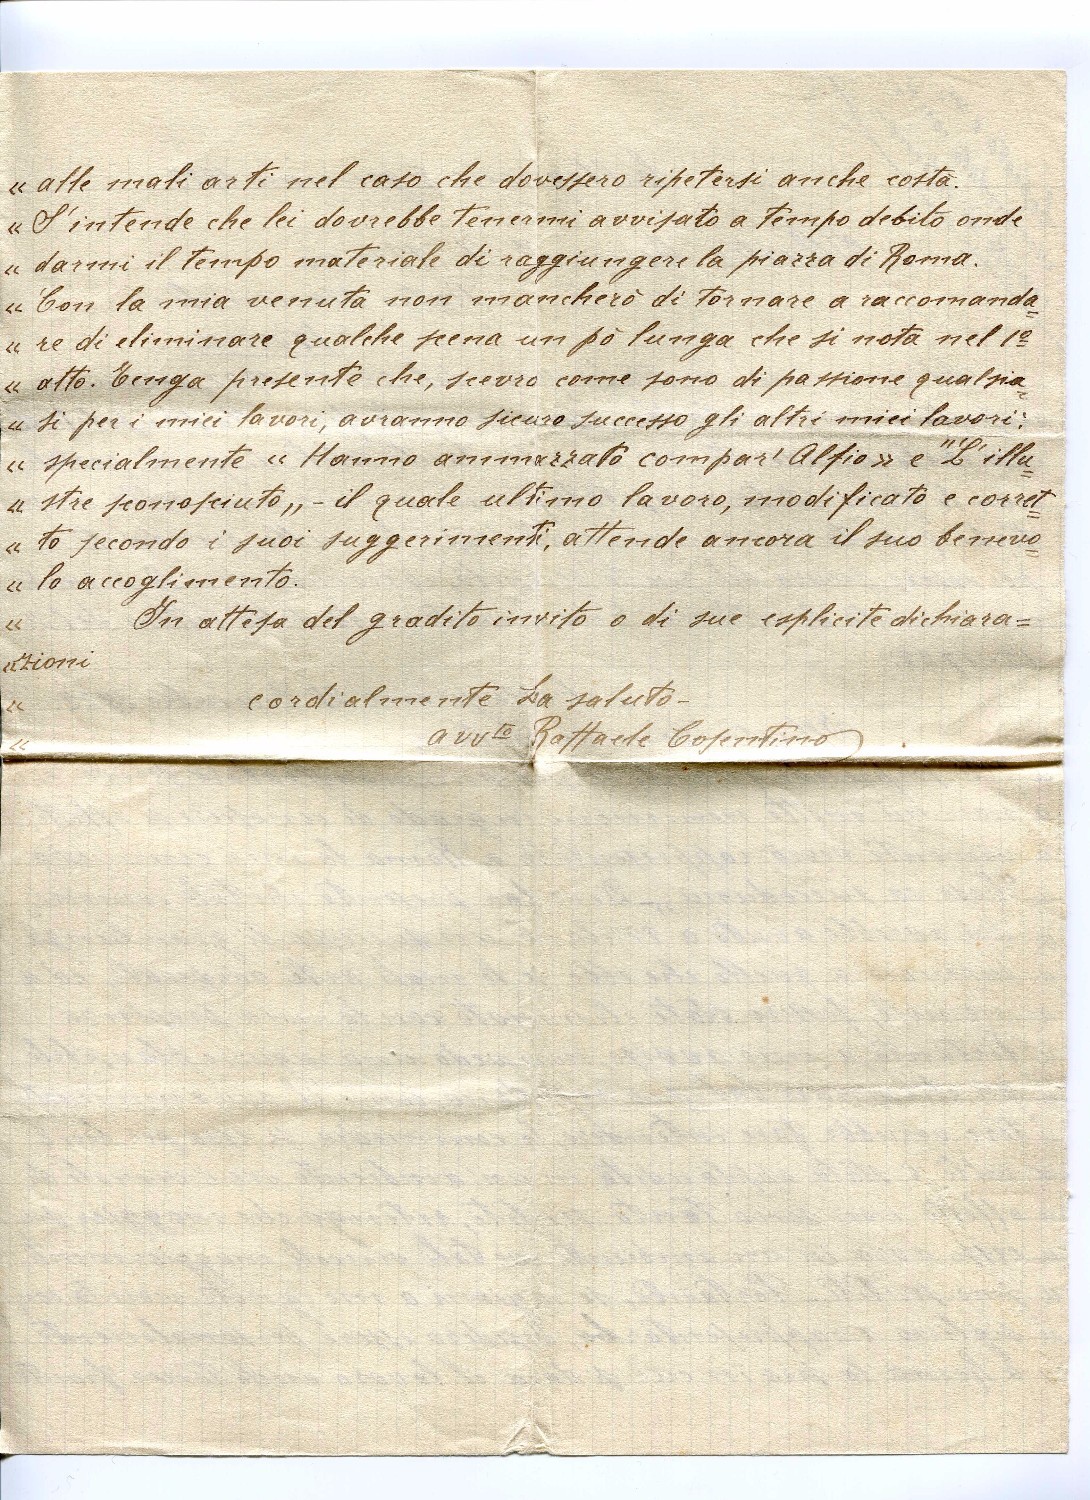 « alle mali arti nel caso che dovessero ripetersi anche costà.
« S'intende che lei dovrebbe tenermi avvisato a tempo debito onde
« darmi il tempo materiale di raggiungere la piazza di Roma.
« Con la mia venuta non mancherò di tornare a raccomanda=
« re di eliminare qualche scena un pò lunga che si nota nel 1º
« atto. Tenga presente che, scevro come sono di passione qualsia=
« si per i miei lavori, avranno sicuro successo gli altri miei lavori;
« specialmente « Hanno ammazzato compar' Alfio » e "L'illu=
« stre sconosciuto„ - il quale ultimo lavoro, modificato e corret=
« to secondo i suoi suggerimenti, attende ancora il suo benevo=
« lo accoglimento.
« In attesa del gradito invito o di sue esplicite dichiara=
« zioni
« cordialmente La saluto -
« avvto Raffaele Cosentino